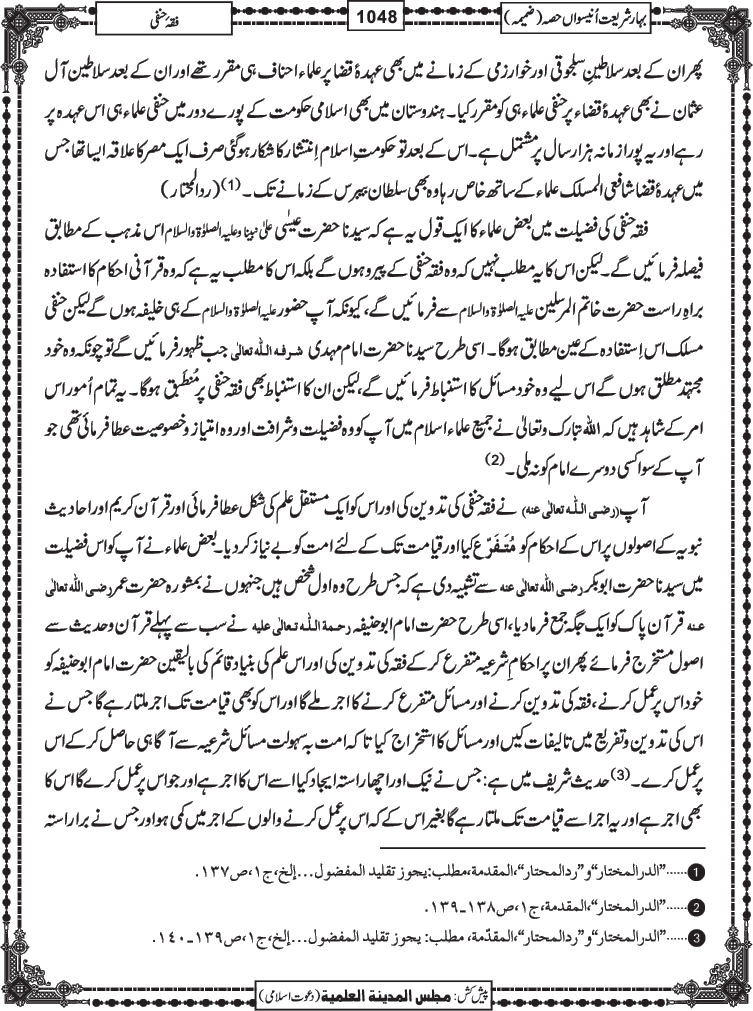 بہارِ شریعت اُنیسواں حصہ (ضمیمہ)
1048
فقہ حنفی
پھر ان کے بعد سلاطینِ سلجوقی اور خوارزمی کے زمانے میں بھی عہدۂ قضا پر علماءِ احناف ہی مقرر تھے اور ان کے بعد سلاطین آل
عثمان نے بھی عہدۂ قضاء پر حنفی علماء ہی کو مقرر کیا۔ ہندوستان میں بھی اسلامی حکومت کے پورے دور میں حنفی علماء ہی اس عہدہ پر
رہے اور یہ پورا زمانہ ہزار سال پر مشتمل ہے۔ اس کے بعد تو حکومتِ اسلام اِنتشار کا شکار ہوگئی صرف ایک مصر کا علاقہ ایسا تھا جس
میں عہدۂ قضا شافعی المسلک علماء کے ساتھ خاص رہا وہ بھی سلطان بیبرس کے زمانے تک۔ (1) (ردالمحتار)
فقہ حنفی کی فضیلت میں بعض علماء کا ایک قول یہ ہے کہ سیدنا حضرت عیسٰی علیٰ نبینا وعلیہ الصلوٰۃ والسلام اس مذہب کے مطابق
فیصلہ فرمائیں گے۔ لیکن اس کا یہ مطلب نہیں کہ وہ فقہ حنفی کے پیرو ہوں گے بلکہ اس کا مطلب یہ ہے کہ وہ قرآنی احکام کا استفادہ
براہِ راست حضرت خاتم المرسلین علیہ الصلوٰۃ والسلام سے فرمائیں گے، کیونکہ آپ حضور علیہ الصلوٰۃ والسلام کے ہی خلیفہ ہوں گے لیکن حنفی
مسلک اس اِستفادہ کے عین مطابق ہوگا۔ اسی طرح سیدنا حضرت امام مہدی شرفہ اللہ تعالیٰ جب ظہور فرمائیں گے تو چونکہ وہ خود
مجتہد مطلق ہوں گے اس لیے وہ خود مسائل کا استنباط فرمائیں گے، لیکن ان کا استنباط بھی فقہ حنفی پر مُنطبق ہوگا۔ یہ تمام اُمور اس
امر کے شاہد ہیں کہ اللہ تبارک وتعالیٰ نے جمیع علماء اسلام میں آپ کو وہ فضیلت وشرافت اور وہ امتیاز وخصوصیت عطا فرمائی تھی جو
آپ کے سوا کسی دوسرے امام کو نہ ملی۔ (2)
آپ (رضی اللہ تعالیٰ عنہ) نے فقہ حنفی کی تدوین کی اور اس کو ایک مستقل علم کی شکل عطا فرمائی اور قرآن کریم اور احادیث
نبویہ کے اصولوں پر اس کے احکام کو مُتَفَرِّع کیا اور قیامت تک کے لئے امت کو بے نیاز کر دیا۔ بعض علماء نے آپ کو اس فضیلت
میں سیدنا حضرت ابوبکر رضی اللہ تعالیٰ عنہ سے تشبیہ دی ہے کہ جس طرح وہ اول شخص ہیں جنہوں نے بمشورہ حضرت عمر رضی اللہ تعالیٰ
عنہ قرآن پاک کو ایک جگہ جمع فرما دیا، اسی طرح حضرت امام ابوحنیفہ رحمۃ اللہ تعالیٰ علیہ نے سب سے پہلے قرآن وحدیث سے
اصول مستخرج فرمائے پھر ان پر احکامِ شرعیہ متفرع کرکے فقہ کی تدوین کی اور اس علم کی بنیاد قائم کی بالیقین حضرت امام ابوحنیفہ کو
خود اس پر عمل کرنے، فقہ کی تدوین کرنے اور مسائل متفرع کرنے کا اجر ملے گا اور اس کو بھی قیامت تک اجر ملتا رہے گا جس نے
اس کی تدوین وتفریع میں تالیفات کیں اور مسائل کا استخراج کیا تاکہ امت بہ سہولت مسائل شرعیہ سے آگاہی حاصل کرکے اس
پر عمل کرے۔ (3) حدیث شریف میں ہے: جس نے نیک اور اچھا راستہ ایجاد کیا اسے اس کا اجر ہے اور جو اس پر عمل کرے گا اس کا
بھی اجر ہے اور یہ اجر اسے قیامت تک ملتا رہے گا بغیر اس کے کہ اس پر عمل کرنے والوں کے اجر میں کمی ہو اور جس نے برا راستہ
1 ......"الدرالمختار" و "ردالمحتار"، المقدمة، مطلب: يجوز تقليد المفضول...إلخ، ج١، ص١٣٧.
2 ......"الدرالمختار"، المقدمة، ج١، ص١٣٨-١٣٩.
3 ......"الدرالمختار" و "ردالمحتار"، المقدّمة، مطلب: يجوز تقليد المفضول...إلخ، ج١، ص١٣٩-١٤٠.
پیش کش: مجلس المدینة العلمیة (دعوت اسلامی)